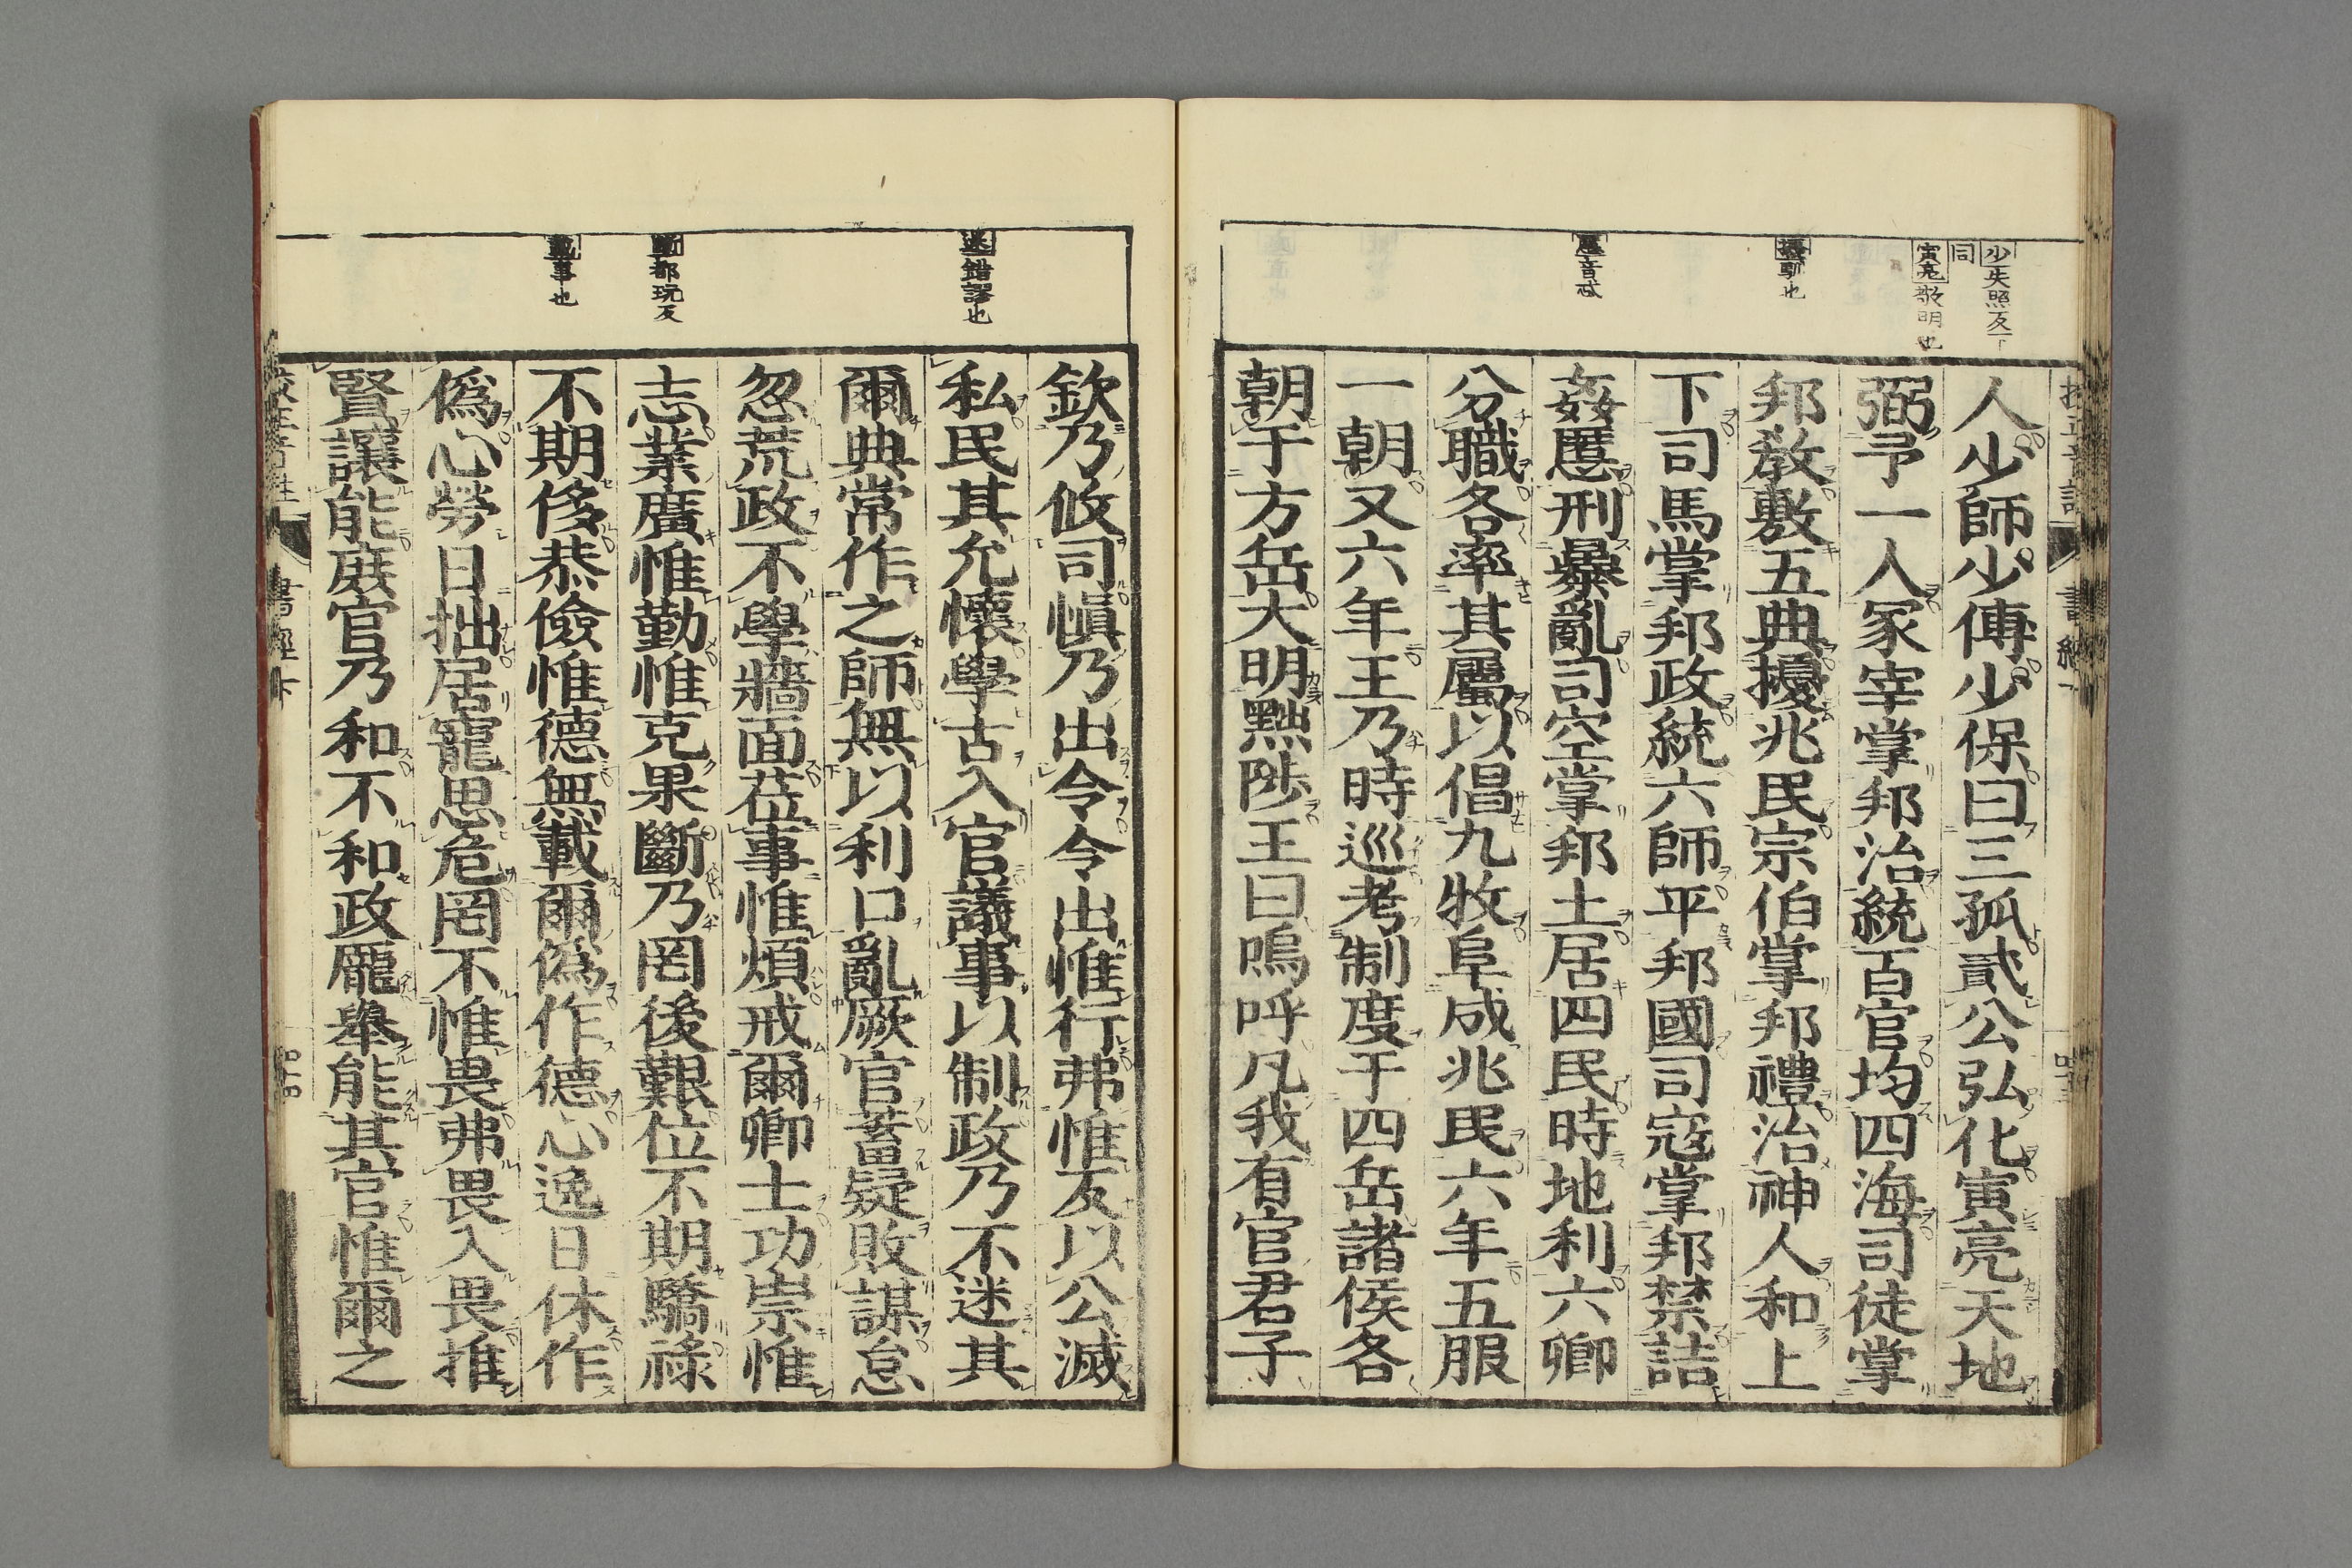 少失照反下
同
寅亮敬明也
擾馴也
慝音忒
人少師少傅少保曰三孤貳公弘化寅亮天地
弼予一人冢宰掌邦治統百官均四海司徒掌
邦教敷五典擾兆民宗伯掌邦禮治神人和上
下司馬掌邦政統六師平邦國司寇掌邦禁詰
姦慝刑暴亂司空掌邦土居四民時地利六卿
分職各率其屬以倡九牧阜成兆民六年五服
一朝又六年王乃時巡考制度于四岳諸侯各
朝于方岳大明黜陟王曰嗚呼凡我有官君子
迷錯謬也
斷都玩反
載事也
欽乃攸司慎乃出令令出惟行弗惟反以公滅
私民其允懷學古入官議事以制政乃不迷其
爾典常作之師無以利口亂厥官蓄疑敗謀怠
忽荒政不學牆面莅事惟煩戒爾卿士功崇惟
志業廣惟勤惟克果斷乃罔後艱位不期驕祿
不期侈恭儉惟德無載爾偽作德心逸日休作
偽心勞日拙居寵思危罔不惟畏弗畏入畏推
賢讓能庶官乃和不和政厖舉能其官惟爾之
書經下